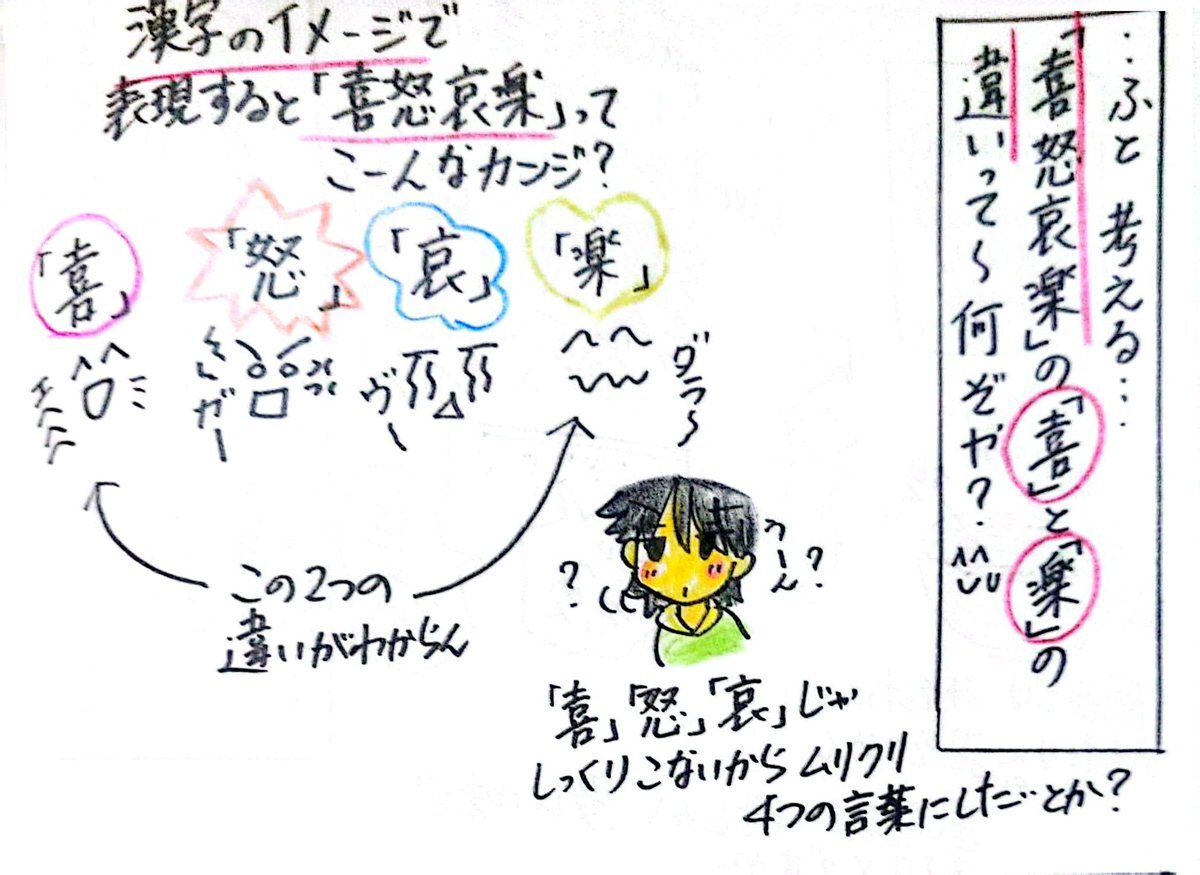 …ふと 考える…
「喜怒哀楽」の「喜」と「楽」の
違いって〜何ぞや?…
漢字のイメージで
表現すると「喜怒哀楽」って
こーんなカンジ?
「喜」
「怒」
「哀」
「楽」
ガー
ヴー
ダラ〜
この2つの
違いがわからん
?
うーん?
「喜」「怒」「哀」じゃ
しっくりこないからムリクリ
4つの言葉にした…とか?